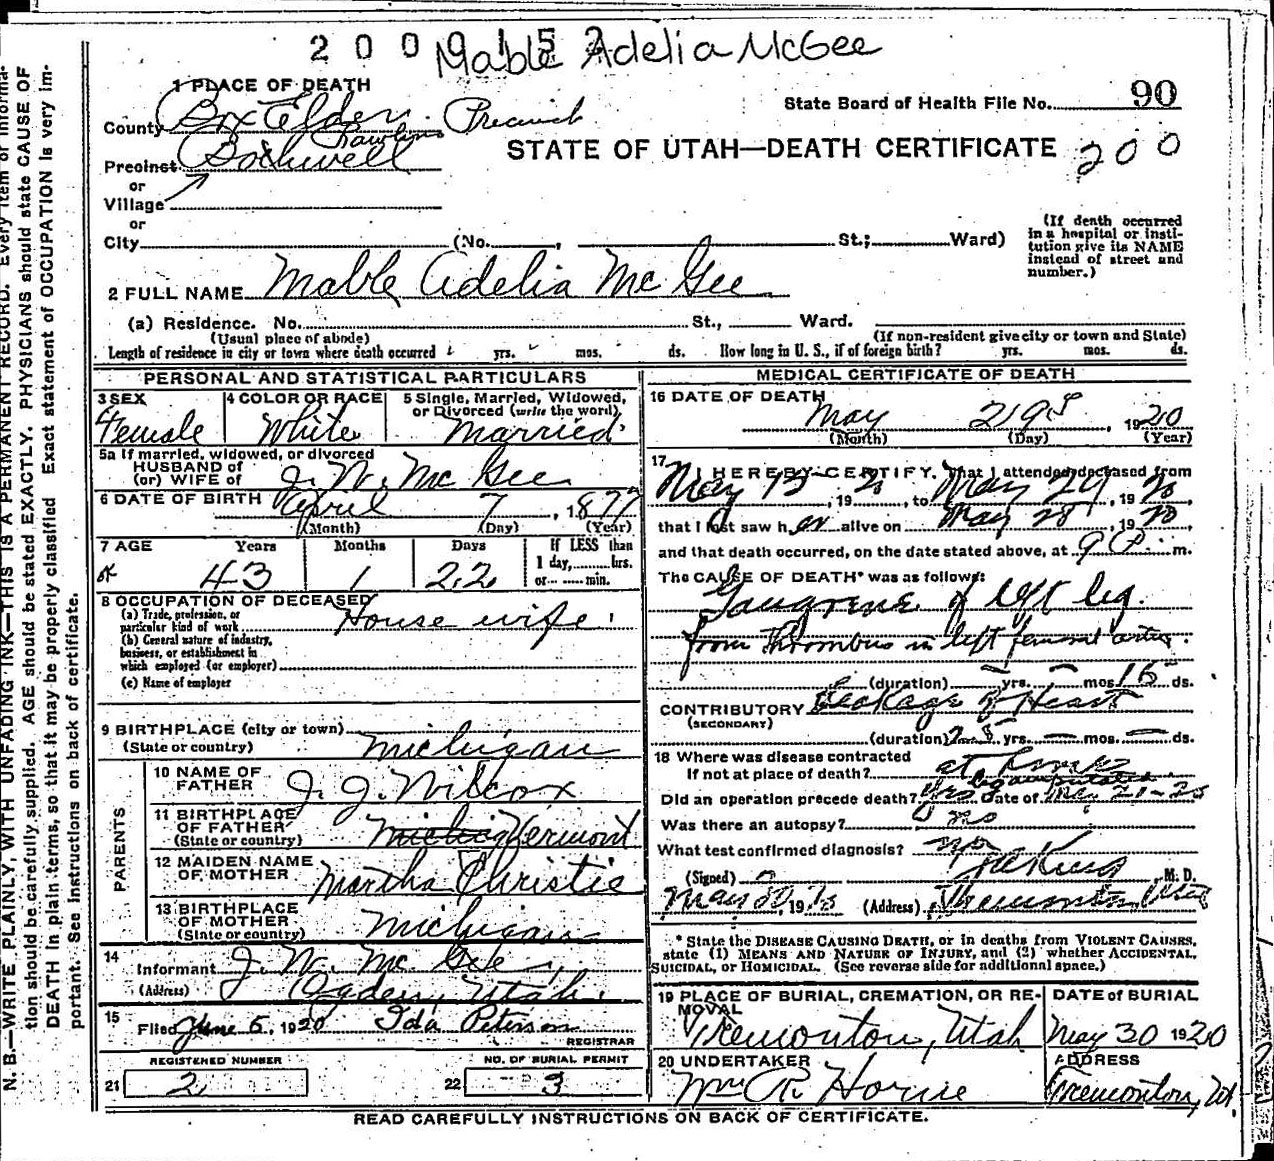 2 0 0 0 1 5 2
Mable Adelia McGee
1 PLACE OF DEATH
County Box Elder Precinct
State Board of Health File No. 90
Rawlins
Precinct Bothwell
STATE OF UTAH—DEATH CERTIFICATE 200
or
Village
or
City (No. , St.; Ward)
(If death occurred
in a hospital or insti-
tution give its NAME
instead of street and
number.)
2 FULL NAME Mable Adelia McGee
(a) Residence. No. St., Ward.
(Usual place of abode) (If non-resident give city or town and State)
Length of residence in city or town where death occurred yrs. mos. ds. How long in U. S., if of foreign birth? yrs. mos. ds.
PERSONAL AND STATISTICAL PARTICULARS
3 SEX 4 COLOR OR RACE 5 Single, Married, Widowed,
or Divorced (write the word)
Female White Married
5a If married, widowed, or divorced
HUSBAND of
(or) WIFE of J. W. McGee
6 DATE OF BIRTH April 7, 1877
(Month) (Day) (Year)
7 AGE Years Months Days If LESS than
1 day, hrs.
43 1 22 or min.
8 OCCUPATION OF DECEASED
(a) Trade, profession, or
particular kind of work House wife
(b) General nature of industry,
business, or establishment in
which employed (or employer)
(c) Name of employer
9 BIRTHPLACE (city or town)
(State or country) Michigan
PARENTS
10 NAME OF
FATHER J. J. Wilcox
11 BIRTHPLACE
OF FATHER
(State or country) Vermont
12 MAIDEN NAME
OF MOTHER Martha Christie
13 BIRTHPLACE
OF MOTHER
(State or country) Michigan
14
Informant J. W. McGee,
(Address) Ogden, Utah.
15
Filed June 5, 1920 Ida Peterson
REGISTRAR
REGISTERED NUMBER NO. OF BURIAL PERMIT
21 2 22 3
MEDICAL CERTIFICATE OF DEATH
16 DATE OF DEATH
May 29th, 1920
(Month) (Day) (Year)
17
I HEREBY CERTIFY, That I attended deceased from
May 15, 1920, to May 29, 1920,
that I last saw her alive on May 28, 1920,
and that death occurred, on the date stated above, at 9 P. m.
The CAUSE OF DEATH* was as follows:
Gangrene of left leg.
from Thrombus in left femoral artery.
(duration) yrs. mos. 15 ds.
CONTRIBUTORY Leakage of Heart
(SECONDARY)
(duration) yrs. mos. ds.
18 Where was disease contracted
If not at place of death? at
leg amputated
Did an operation precede death? Yes Date of May
Was there an autopsy? no
What test confirmed diagnosis? no
(Signed) M. D.
May 30, 19 (Address) Tremonton Utah
* State the DISEASE CAUSING DEATH, or in deaths from VIOLENT CAUSES,
state (1) MEANS AND NATURE OF INJURY, and (2) whether ACCIDENTAL,
SUICIDAL, or HOMICIDAL. (See reverse side for additional space.)
19 PLACE OF BURIAL, CREMATION, OR RE-
MOVAL
DATE of BURIAL
Tremonton, Utah May 30 1920
20 UNDERTAKER ADDRESS
Wm R. Horne Tremonton, Ut.
READ CAREFULLY INSTRUCTIONS ON BACK OF CERTIFICATE.
N. B.—WRITE PLAINLY, WITH UNFADING INK—THIS IS A PERMANENT RECORD. Every item of informa-
tion should be carefully supplied. AGE should be stated EXACTLY. PHYSICIANS should state CAUSE OF
DEATH in plain terms, so that it may be properly classified. Exact statement of OCCUPATION is very im-
portant. See instructions on back of certificate.